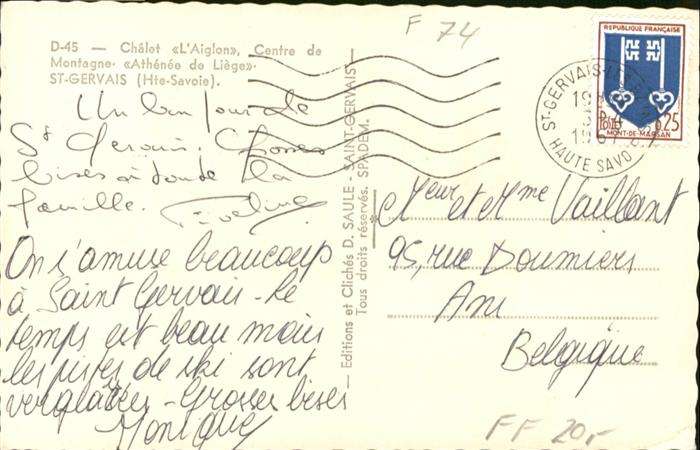 F 74
D-45 — Châlet «L'Aiglon», Centre de
Montagne «Athénée de Liège»
ST-GERVAIS (Hte-Savoie).
Un bonjour de
St Gervais. Grosses
bises à toute la
famille. Eveline
On s'amuse beaucoup
à Saint Gervais. Le
temps est beau mais
les pistes de ski sont
verglacées. Grosses bises
Monique
— Editions et Clichés D. SAULE - SAINT-GERVAIS —
Tous droits réservés. SPADEM.
REPUBLIQUE FRANÇAISE
POSTES 0,25
MONT-DE-MARSAN
ST-GERVAIS-
HAUTE SAVO
Meur et Mme Vaillant
95, rue Doumiers
Ans
Belgique
FF 20,-